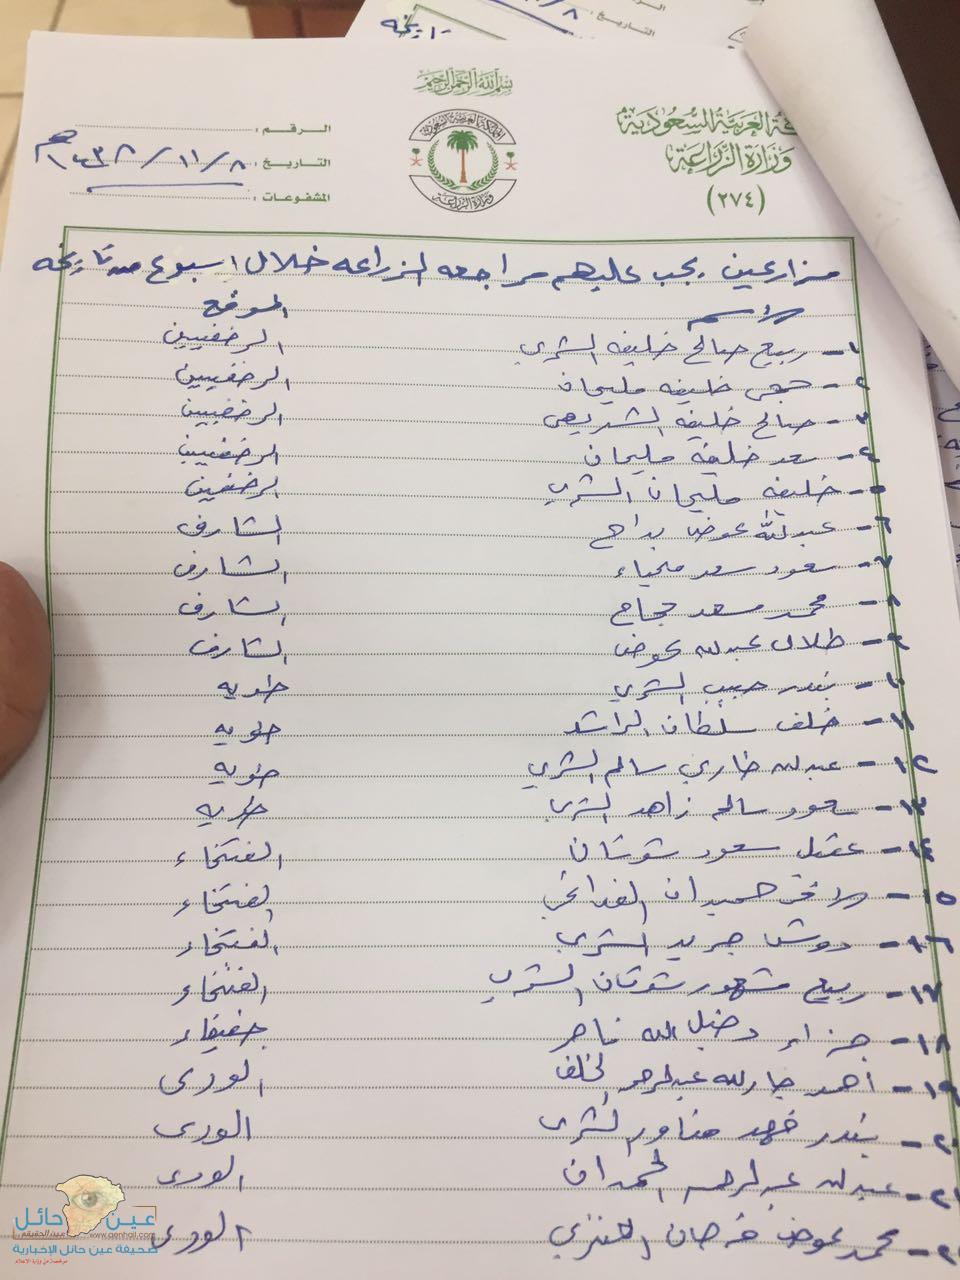 بسم الله الرحمن الرحيم
ـة العربية السعودية
وزارة الزراعة
(٢٧٤)
المملكة العربية السعودية
وزارة الزراعة
الـرقـم :
التاريخ : ٨ / ١١ / ١٤٣٨ هـ
المشفوعات :
مزارعين يجب عليهم مراجعه الزراعه خلال اسبوع من تاريخه
الاسم الموقع
١- ربيع صالح خليفه الشمري الرضفيين
٢- حجي خليفه مليحان الرضفيين
٣- صالح خليفه الرضفيين
٤- سعد خليفه مليحان الرضفيين
٥- خليفه مليحان الشمري الرضفيين
٦- عبدالله عوض الشارف
٧- سعود سعد الشارف
٨- محمد سعد حجاج الشارف
٩- طلال عبدالله عوض الشارف
١٠- بندر حبيب الشمري طويه
١١- خلف سلطان الراشد طويه
١٢- عبدالله سالم الشمري طويه
١٣- سعود سالم زاهد الشمري طويه
١٤- عقيل سعود شوشان الفتخاء
١٥- حميدان الفتخاء
١٦- جريد الشمري الفتخاء
١٧- ربيع مشهور الشمري الفتخاء
١٨- جزاء دخيل الله ناصر جفيفاء
١٩- احمد جارالله عبدالرحمن الخلف الوردي
٢٠- بندر فهد مناور الشمري الوردي
٢١- عبدالله عبدالرحمن الحمدان الوردي
٢٢- محمد عوض فرحان العنزي الوردي
عين حائل
صحيفة عين حائل الإخبارية
www.aenhail.com